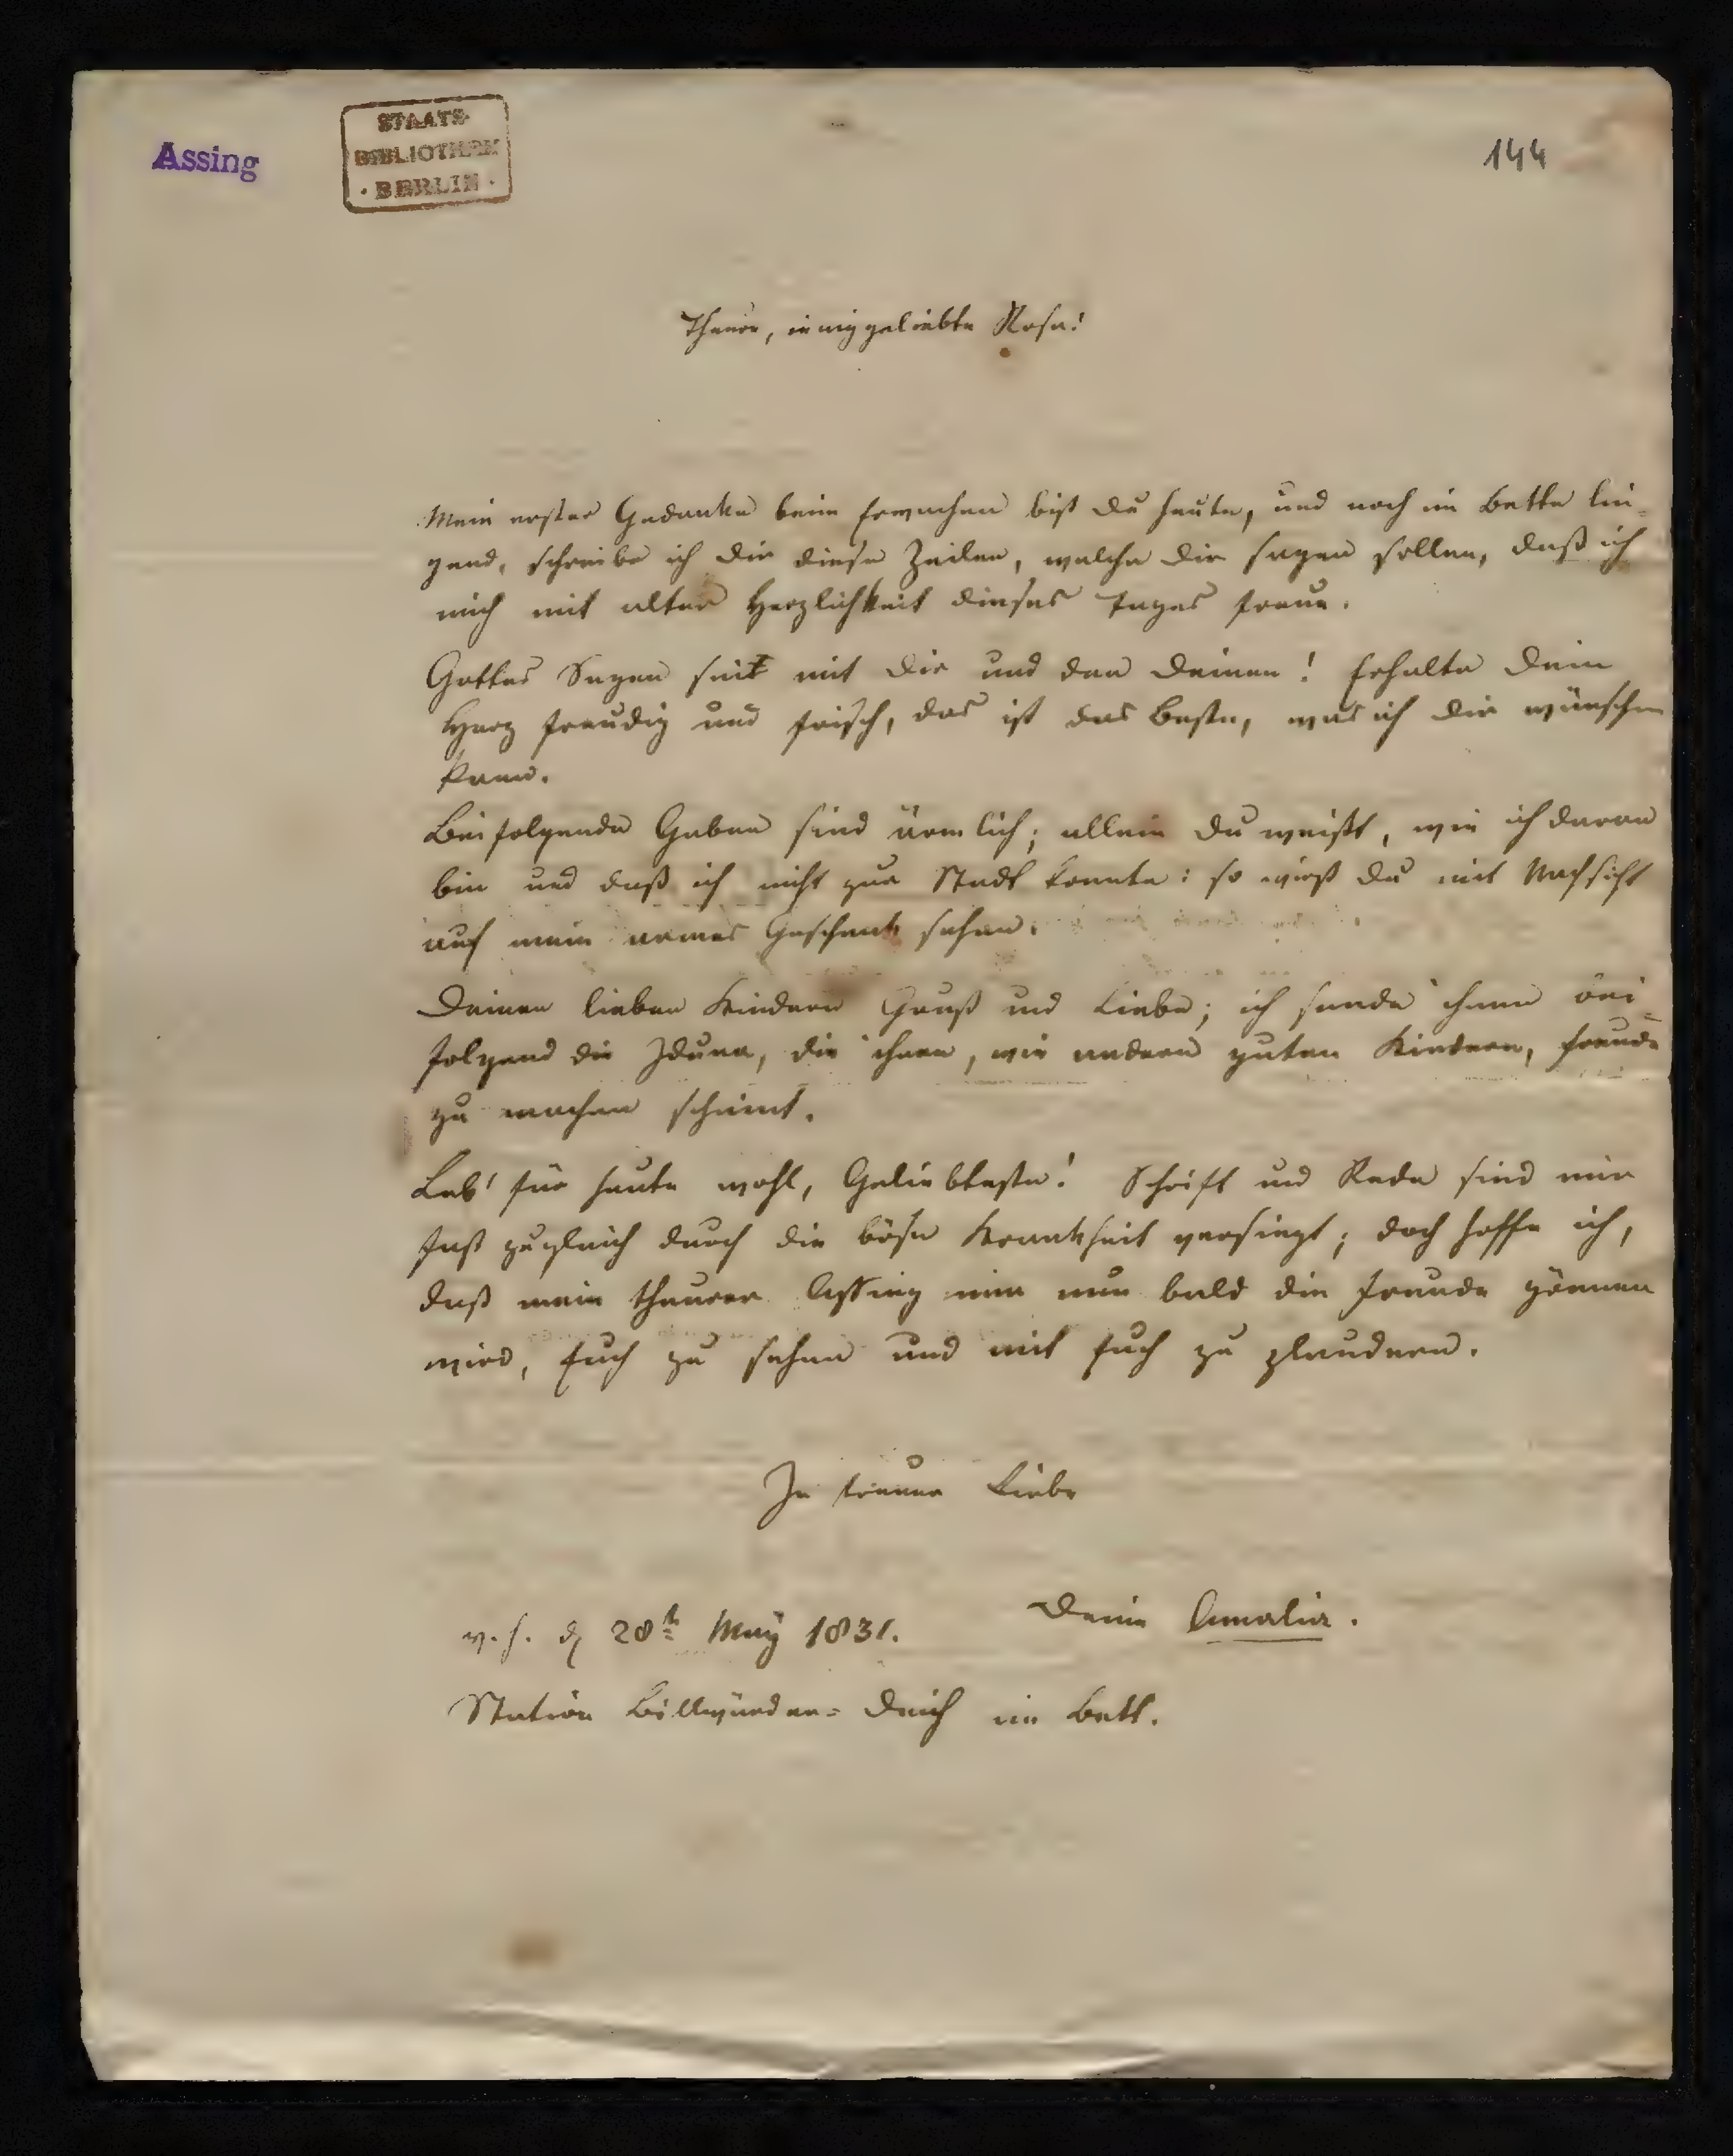 Assing
STAATS-
BIBLIOTHEK
· BERLIN ·
144
Theure, innig geliebte Rosa!
Mein erster Gedanke beim Erwachen bist Du heute, und noch im Bette lie-
gend, schreibe ich Dir diese Zeilen, welche Dir sagen sollen, daß ich
mich mit alter Herzlichkeit dieses Tages freue.
Gottes Segen seit mit Dir und den Deinen! Erhalte Dein
Herz freudig und frisch, das ist das Beste, was ich Dir wünschen
kann.
Beifolgende Gaben sind ärmlich; allein Du weißt, wie ich daran
bin und daß ich nicht zur Stadt konnte: so wirst Du mit Nachsicht
auf mein armes Geschenk sehen.
Deinen lieben Kindern Gruß und Liebe; ich sende ihnen bei-
folgend die Iduna, die ihnen, wie andern guten Kindern, Freude
zu machen scheint.
Leb' für heute wohl, Geliebteste! Schrift und Rede sind mir
fast zugleich durch die böse Krankheit versiegt; doch hoffe ich,
daß mein theurer Assing mir nun bald die Freude gönnen
wird, Euch zu sehen und mit Euch zu plaudern.
In treuer Liebe
Deine Amalia.
v. H. d 28t May 1831.
Station Billwärder-Deich im Bett.